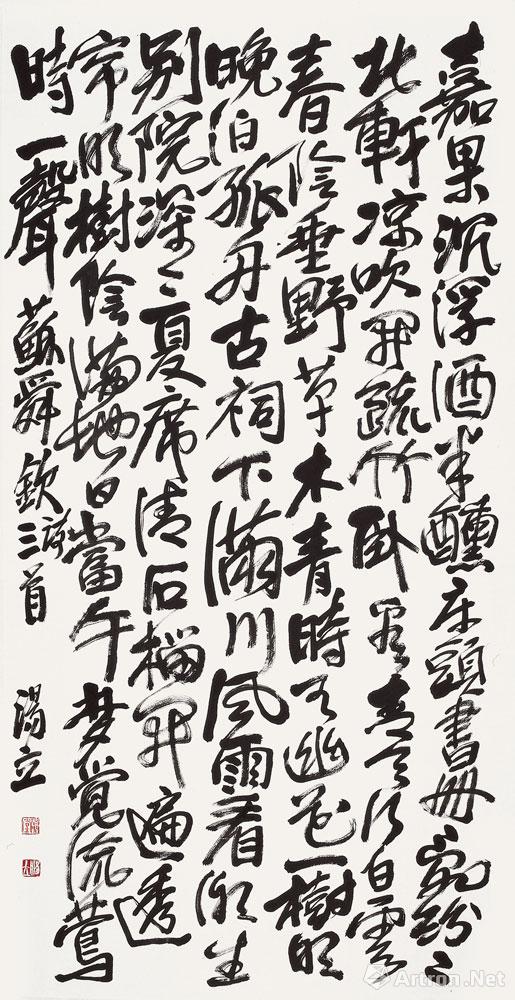 嘉果沉浮酒半醺床頭書冊亂紛〻
北軒凉吹開疏竹臥看青天行白雲
春陰垂野草木青時有幽花一樹明
晚泊孤舟古祠下滿川風雨看潮生
別院深〻夏席清石榴開遍透
帘明樹陰滿地日當午夢覺流鶯
時一聲 蘇舜欽詩三首 湯立
Artron.Net